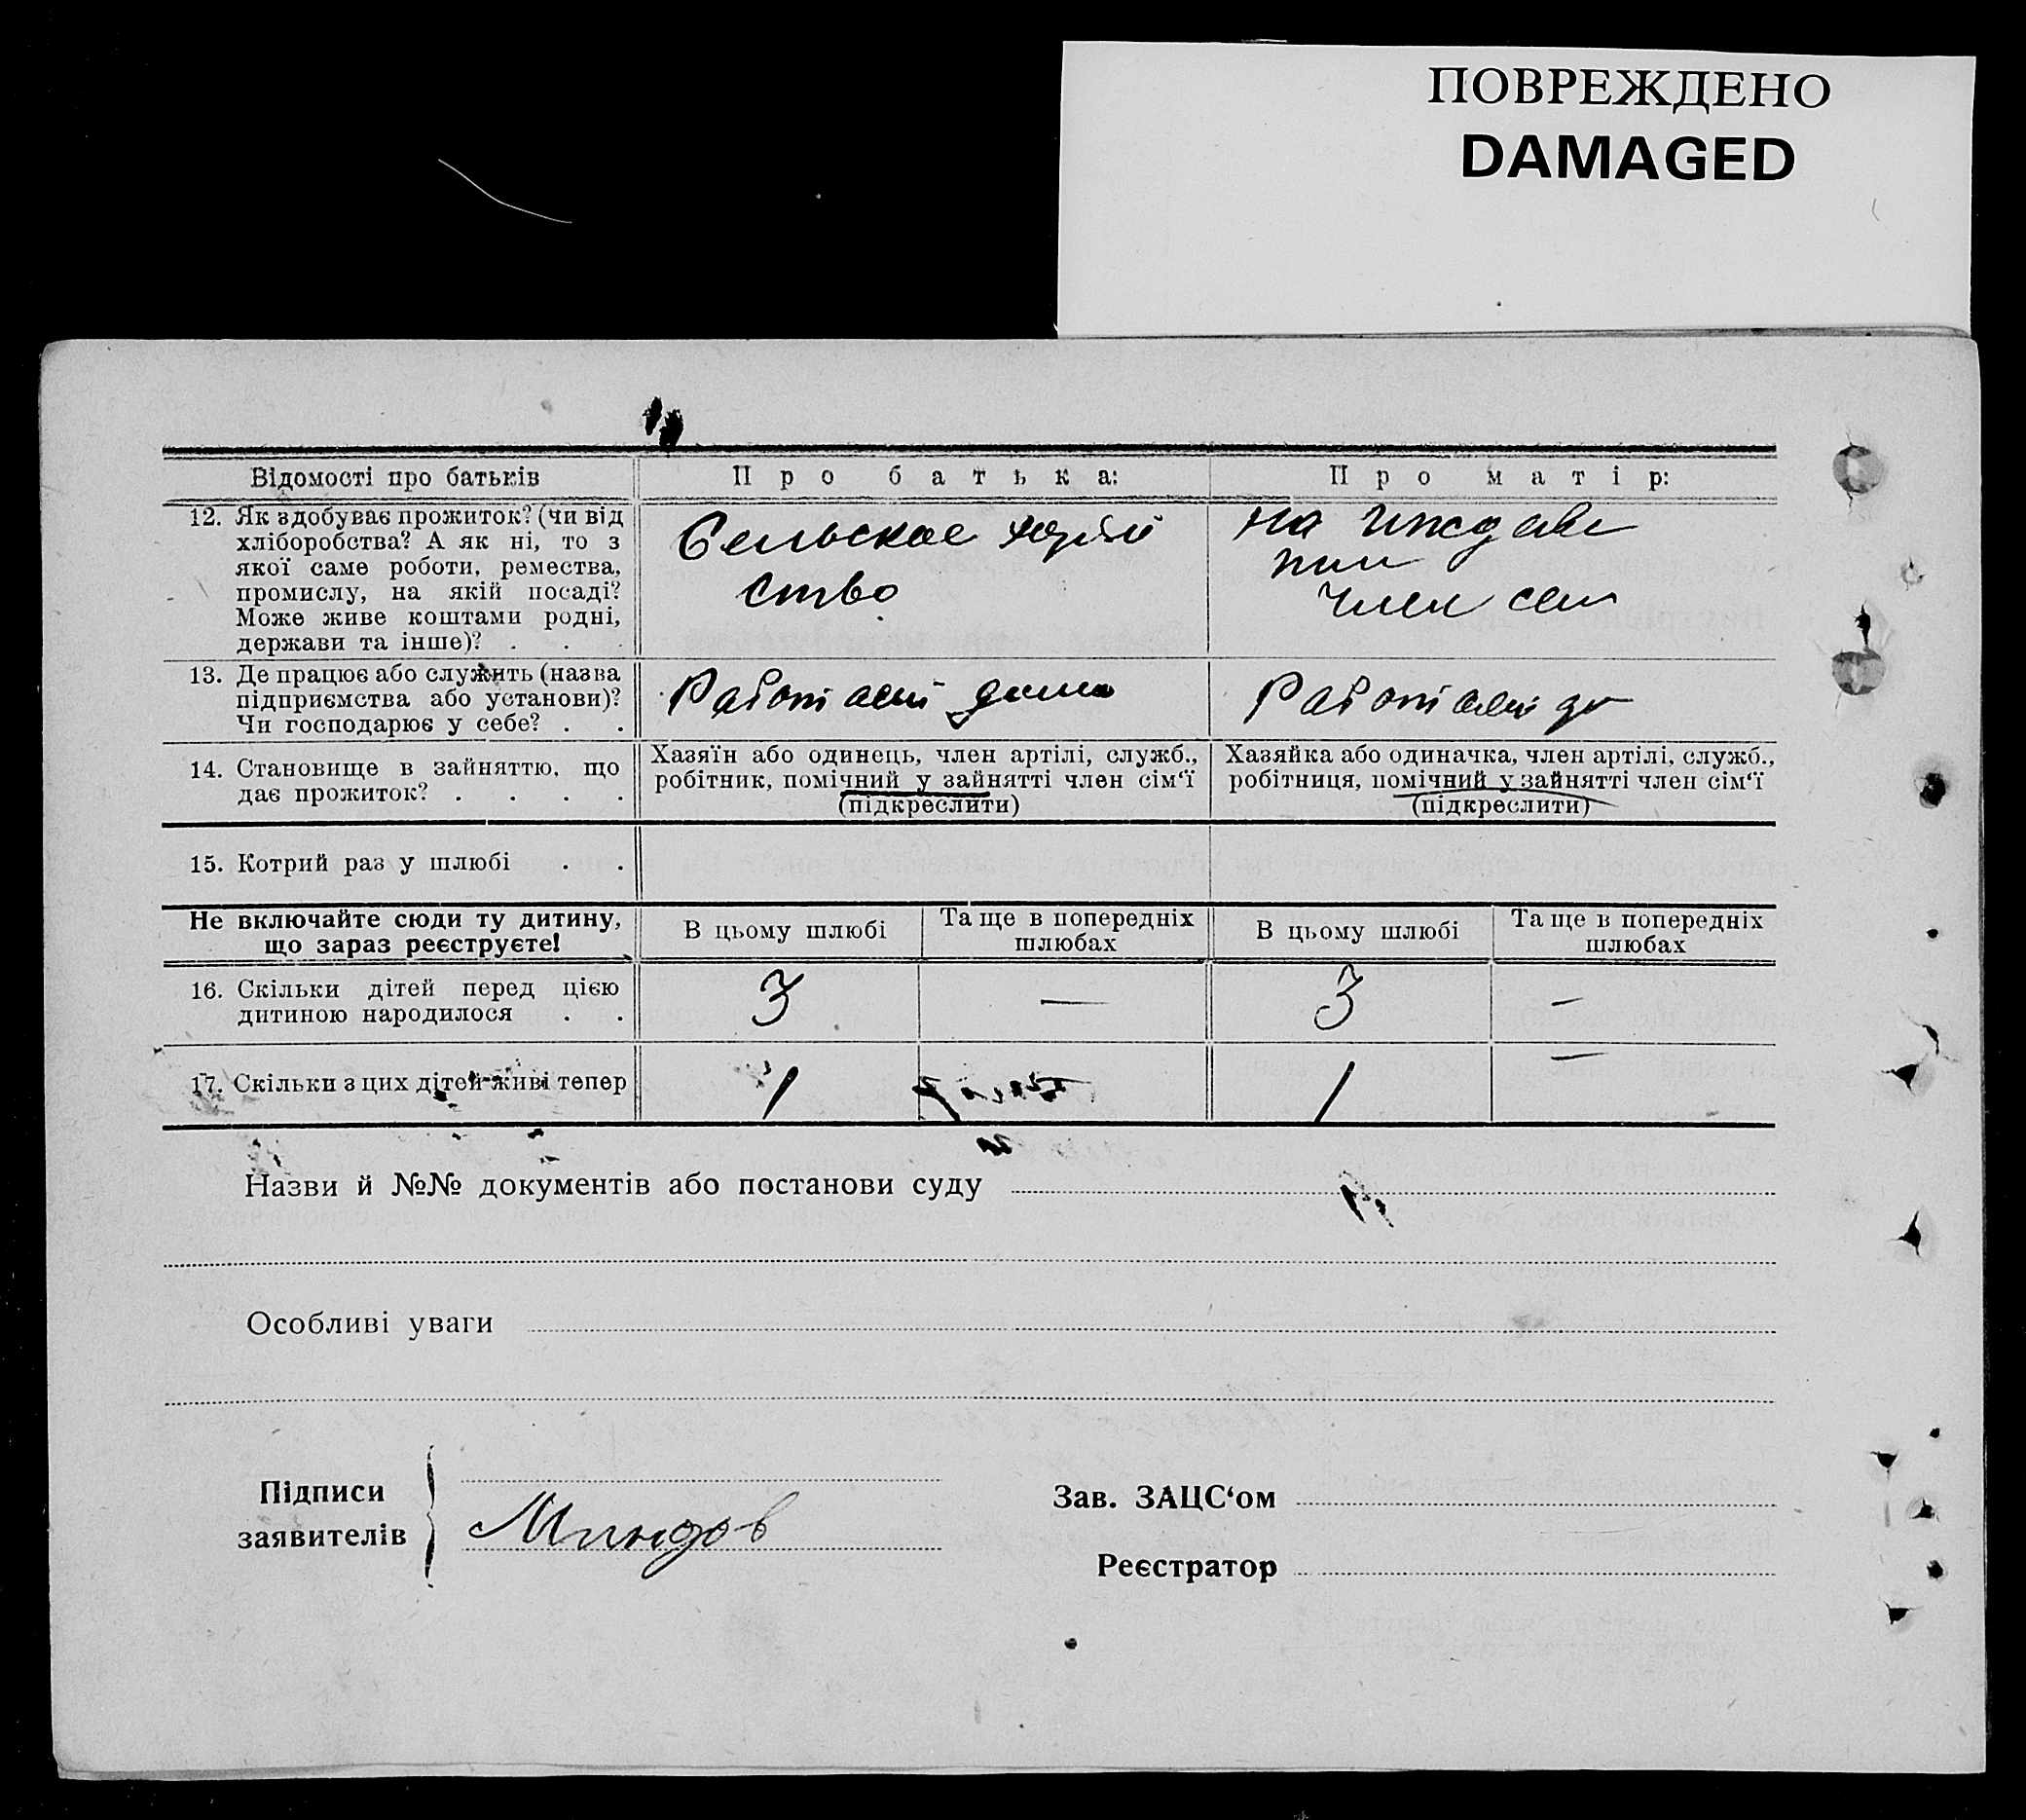 ПОВРЕЖДЕНО
DAMAGED
Відомості про батьків
Про батька:
Про матір:
12. Як здобуває прожиток? (чи від
хліборобства? А як ні, то з
якої саме роботи, ремества,
промислу, на якій посаді?
Може живе коштами родні,
держави та інше)? . . .
Сельское
ство
на иждиве
нии
член сем
13. Де працює або служить (назва
підприємства або установи)?
Чи господарює у себе? . .
Работает дома
Работает до
14. Становище в зайняттю, що
дає прожиток? . . . .
Хазяїн або одинець, член артілі, служб.,
робітник, помічний у зайнятті член сім‘ї
(підкреслити)
Хазяйка або одиначка, член артілі, служб.,
робітниця, помічний у зайнятті член сім‘ї
(підкреслити)
15. Котрий раз у шлюбі . .
Не включайте сюди ту дитину,
що зараз реєструєте!
В цьому шлюбі
Та ще в попередніх
шлюбах
В цьому шлюбі
Та ще в попередніх
шлюбах
16. Скільки дітей перед цією
дитиною народилося . .
3
—
3
—
17. Скільки з цих дітей живі тепер
1
1
—
Назви й №№ документів або постанови суду
Особливі уваги
Підписи
заявителів
Миндов
Зав. ЗАЦС‘ом
Реєстратор